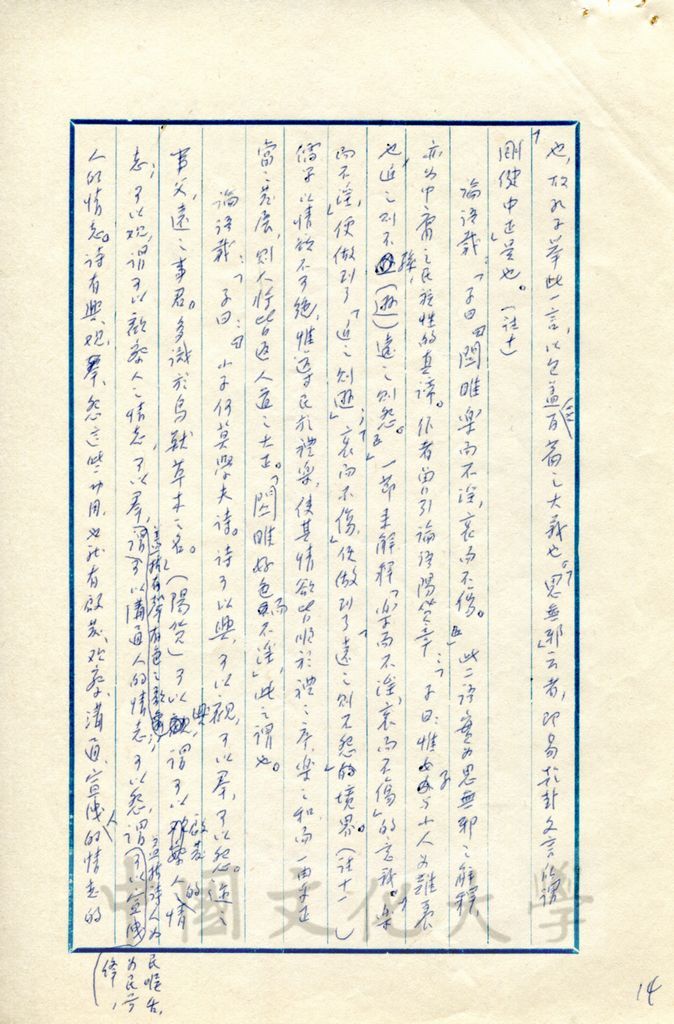 也，故孔子舉此一言，以包蓋(三)百篇之大義也。「思無邪」云者，即易乾卦文言所謂
「剛健中正是也。」（註十）
論語載：「子曰：關雎樂而不淫，哀而不傷。」此二語實為思無邪之解釋，
亦為中庸之民族性的真諦。作者曾引論語陽貨章：「子曰：惟女子與小人為難養
也近之則不孫，（遜）遠之則怨。」一節來解釋「樂而不淫，哀而不傷」的意義。樂
而不淫，便做到了「近之則遜」；哀而不傷，便做到了「遠之則不怨」的境界。（註十一）
儒家以情欲不可絕，惟導民於禮樂，使其情欲皆順於禮之序，樂之和，而一由乎正
當之發展，則人將皆返人道之大正。「關雎好色而不淫」，此之謂也。
論語載：「子曰：小子何莫學夫詩。詩可以興，可以觀，可以羣，可以怨。邇
之事父，遠之事君。多識於鳥獸草木之名。」（陽貨）可以興，謂可以啟發人的情
志；可以觀，謂可以歡察人之情志；可以羣，謂可以溝通人的情志；可以怨，謂可以宣洩
人的情志。詩有興、觀、羣、怨這些功用，也就有啟發、觀察、溝通、宣洩人的情志的
民喉舌，
為民前
鋒，
14
中國文化大學